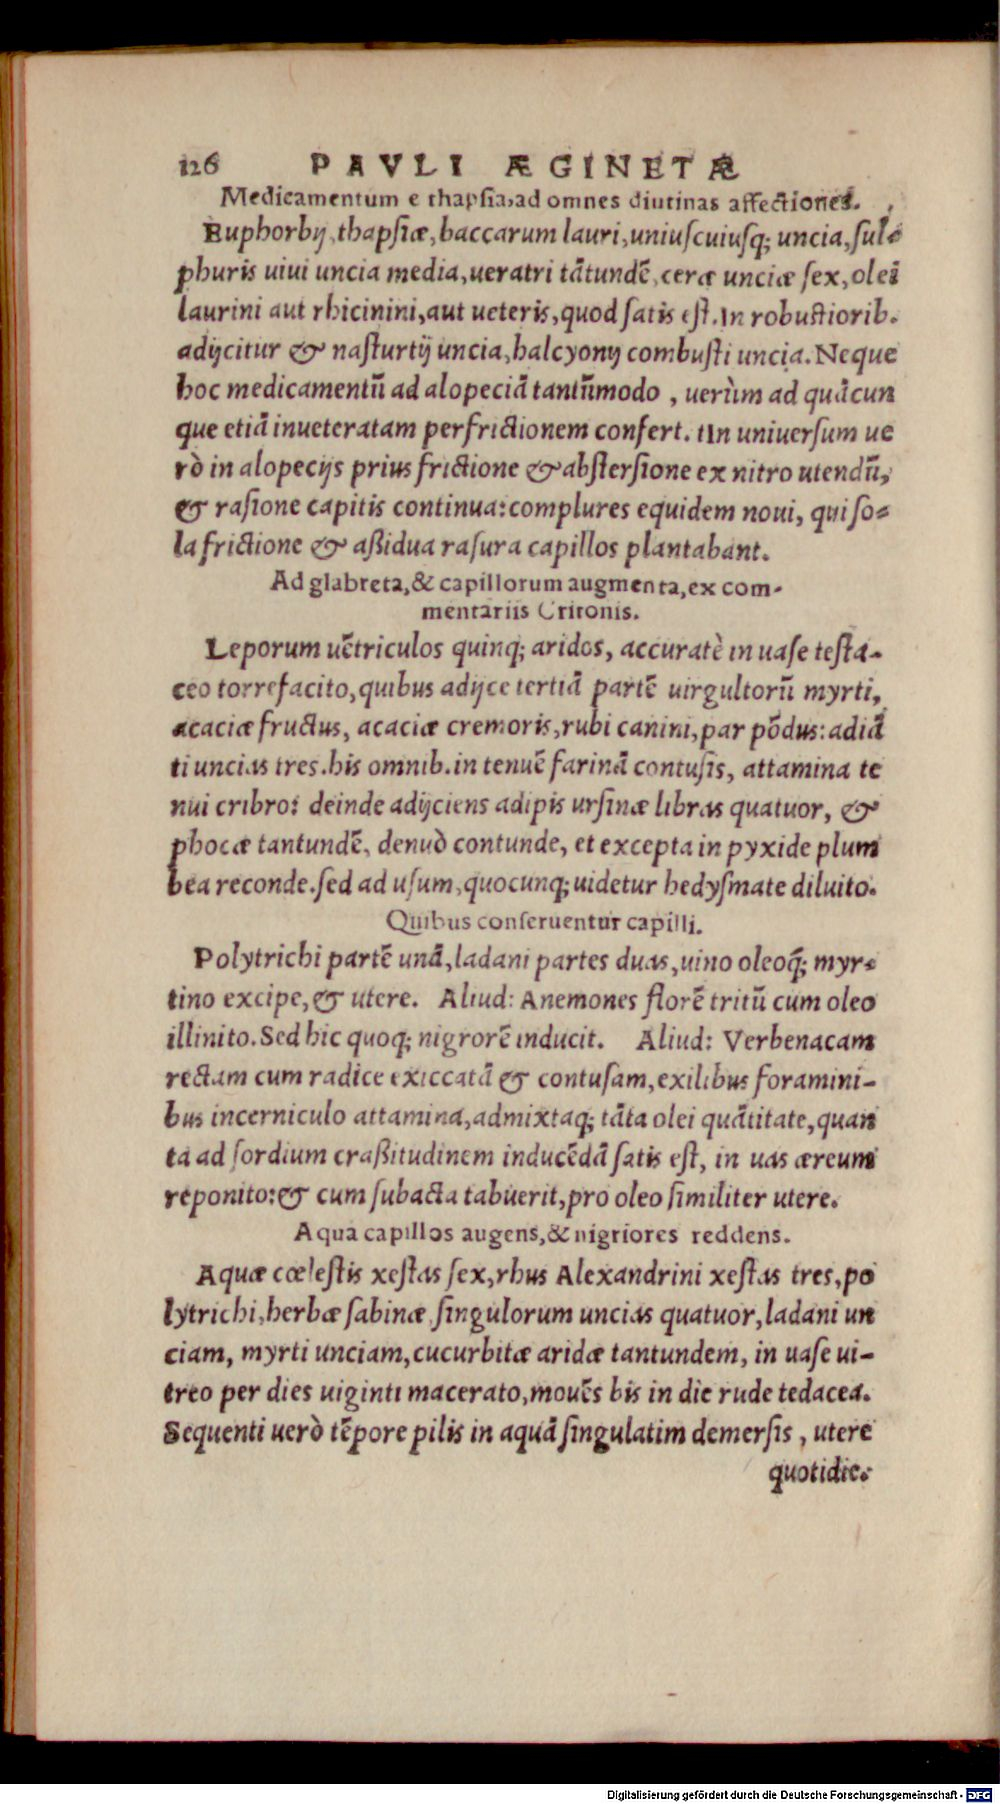 126 PAVLI ÆGINETÆ
Medicamentum e thapsia, ad omnes diutinas affectiones.
Euphorbij, thapsiæ, baccarum lauri, uniuscuiusq; uncia, sul-
phuris uiui uncia media, ueratri tãtundẽ, ceræ unciæ sex, olei
laurini aut rhicinini, aut ueteris, quod satis est. In robustiorib.
adijcitur & nasturtij uncia, halcyonij combusti uncia. Neque
hoc medicamentũ ad alopeciã tantũmodo, uerùm ad quãcun
que etiã inueteratam perfrictionem confert. In uniuersum ue
rò in alopecijs prius frictione & abstersione ex nitro utendũ,
& rasione capitis continua: complures equidem noui, qui so-
la frictione & aßidua rasura capillos plantabant.
Ad glabreta, & capillorum augmenta, ex com-
mentariis Critonis.
Leporum uẽtriculos quinq; aridos, accuratè in uase testa-
ceo torrefacito, quibus adijce tertiã partẽ uirgultorũ myrti,
acaciæ fructus, acaciæ cremoris, rubi canini, par põdus: adiã
ti uncias tres. his omnib. in tenuẽ farinã contusis, attamina te
nui cribro: deinde adijciens adipis ursinæ libras quatuor, &
phocæ tantundẽ, denuò contunde, et excepta in pyxide plum
bea reconde. sed ad usum, quocunq; uidetur hedysmate diluito.
Quibus conseruentur capilli.
Polytrichi partẽ unã, ladani partes duas, uino oleoq̃; myr-
tino excipe, & utere. Aliud: Anemones florẽ tritũ cum oleo
illinito. Sed hic quoq; nigrorẽ inducit. Aliud: Verbenacam
rectam cum radice exiccatã & contusam, exilibus foramini-
bus incerniculo attamina, admixtaq; tãta olei quãtitate, quan
ta ad sordium craßitudinem inducẽdã satis est, in uas æreum
reponito: & cum subacta tabuerit, pro oleo similiter utere.
Aqua capillos augens, & nigriores reddens.
Aquæ cœlestis xestas sex, rhus Alexandrini xestas tres, po
lytrichi, herbæ sabinæ singulorum uncias quatuor, ladani un
ciam, myrti unciam, cucurbitæ aridæ tantundem, in uase ui-
treo per dies uiginti macerato, mouẽs bis in die rude tedacea.
Sequenti uerò tẽpore pilis in aquã singulatim demersis, utere
quotidie.
Digitalisierung gefördert durch die Deutsche Forschungsgemeinschaft - DFG